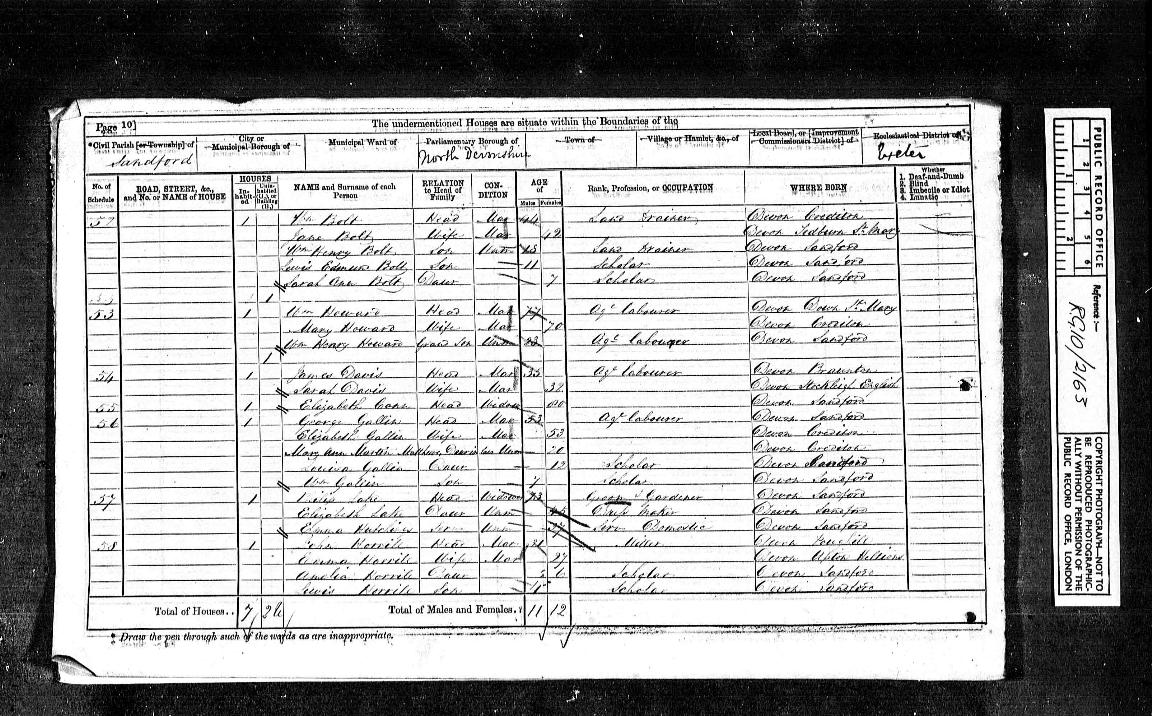 Page 10]
The undermentioned Houses are situate within the Boundaries of the
*Civil Parish [or Township] of
Sandford
City or Municipal Borough of
Municipal Ward of
Parliamentary Borough of
North Devonshire
Town of
Village or Hamlet, &c., of
Local Board, or [Improvement Commissioners District] of
Ecclesiastical District of
Exeter
No. of Schedule
ROAD, STREET, &c., and No. or NAME of HOUSE
HOUSES
In-habit-ed
Unin-habited (U.), or Building (B.)
NAME and Surname of each Person
RELATION to Head of Family
CON-DITION
AGE of
Males
Females
Rank, Profession, or OCCUPATION
WHERE BORN
Whether
1. Deaf-and-Dumb
2. Blind
3. Imbecile or Idiot
4. Lunatic
1 Wm Bolt Head Mar 44 Land Drainer Devon Crediton
Jane Bolt Wife Mar 42 Devon Tedburn St Mary
Wm Henry Bolt Son Unm Land Drainer Devon Sandford
Lewis Edmund Bolt Son 11 Scholar Devon Sandford
Sarah Ann Bolt Daur 7 Scholar Devon Sandford
1
53 1 Wm Howard Head Mar 77 Agl labourer Devon Down St Mary
Mary Howard Wife Mar 70 Devon Crediton
Wm Henry Howard Grand Son Unm 23 Agl labourer Devon Sandford
1
54 1 James Davis Head Mar 35 Agl labourer Devon Braunton
Sarah Davis Wife Mar 32 Devon Stockleigh English
55 1 Elizabeth Head Widow 80 Devon Sandford
56 1 George Gallin Head Mar 53 Agl labourer Devon Sandford
Elizabeth Gallin Wife Mar 53 Devon Crediton
Mary Ann Martin Unm 20 Devon Crediton
Louisa Gallin Daur 12 Scholar Devon Sandford
Wm Gallin Son 7 Scholar Devon Sandford
57 1 Lake Head Widower 73 Groom & Gardener Devon Sandford
Elizabeth Lake Daur Unm Dress Maker Devon Sandford
Emma Hutchins Serv Unm Serv Domestic Devon Sandford
58 1 John Head Mar 31 Miller Devon
Emma Wife Mar 27 Devon Upton Hellions
Amelia Daur 6 Scholar Devon Sandford
Lewis Son Scholar Devon Sandford
Total of Houses.. 7 2u
Total of Males and Females.. 11 12
* Draw the pen through such of the words as are inappropriate.
PUBLIC RECORD OFFICE
1 2 3 4 5 6
1 2
Reference :-
RG/10/2163
COPYRIGHT PHOTOGRAPH—NOT TO BE REPRODUCED PHOTOGRAPHIC-ALLY WITHOUT PERMISSION OF THE PUBLIC RECORD OFFICE, LONDON